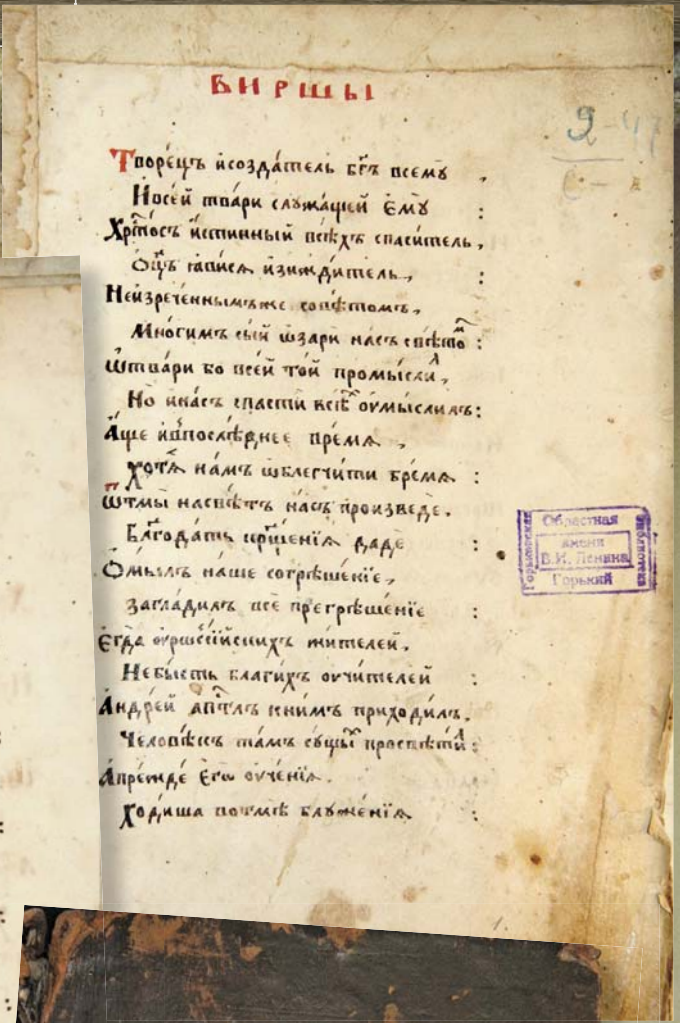 ВИРШЫ
9-47
Творе́цъ и҆созда́тель бг҃ъ всемꙋ̀ ,
И҆все́й твари слꙋжа́щей є҆мꙋ̀ :
Хрⷭ҇то́съ и҆́стинный всѣ́хъ спаси́тель ,
О҆ц҃ъ ꙗ҆ви́сѧ и҆зижди́тель , :
Неизрече́ннымъже совѣ́томъ ,
Мно́гимъ сы́й ѡ҆зарѝ на́съ свѣ́тоⷨ :
Ѿтва́ри бо все́й то́й промы́слиⷧ ,
Но̀ и҆на́съ спастѝ всѣⷯ ᲂу҆мы́слилъ :
А҆́ще и҆впослѣ́днее время̀ ,
хотѧ̀ на́мъ ѡ҆блегчи́ти бре́мѧ :
Ѿтмы̀ насвѣ́тъ на́съ произведѐ .
Бл҃года́ть крⷳ҇щенїѧ дадѐ :
Ѻ҆мы́лъ на́ше согрѣше́нїе ,
загла́дилъ всѐ прегрѣше́нїе :
Є҆гда̀ ᲂу҆рѡссїйскихъ жи́телей ,
Небы́сть благи́хъ ᲂу҆чи́телей :
А҆ндре́й а҆пⷭ҇лъ кни́мъ приходи́лъ ,
Человѣ́къ та́мъ сꙋ́щыⷯ просвѣти́ⷧ :
А҆пре́жде є҆гѡ̀ ᲂу҆че́нїѧ .
Ходи́ша вотмѣ̀ блꙋжде́нїѧ :
Областная
имени
В.И. Ленина
Горький
Горьковская
библиотека
1.